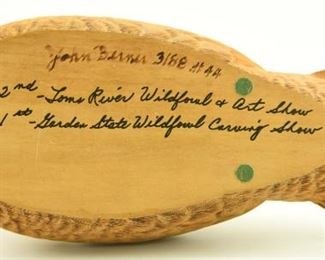 John Berner 3/88 #44
2nd - Toms River Wildfowl & Art Show
1st - Garden State Wildfowl Carving Show